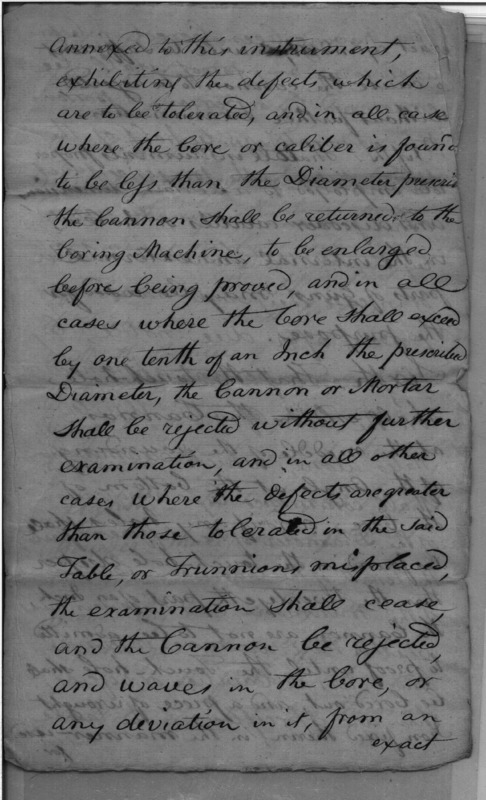 annexed to this instrument,
exhibiting the defects which
are to be tolerated, and in all case
where the bore or caliber is found
to be less than the Diameter prescri
the Cannon shall be returned to the
boring Machine, to be enlarged
before being proved, and in all
cases where the bore shall exceed
by one tenth of an Inch the prescribed
Diameter, the Cannon or Mortar
shall be rejected without further
examination, and in all other
cases where the defects are greater
than those tolerated in the said
Table, or Trunnions misplaced,
the examination shall cease,
and the Cannon be rejected,
and waves in the bore, or
any deviation in it, from an
exact